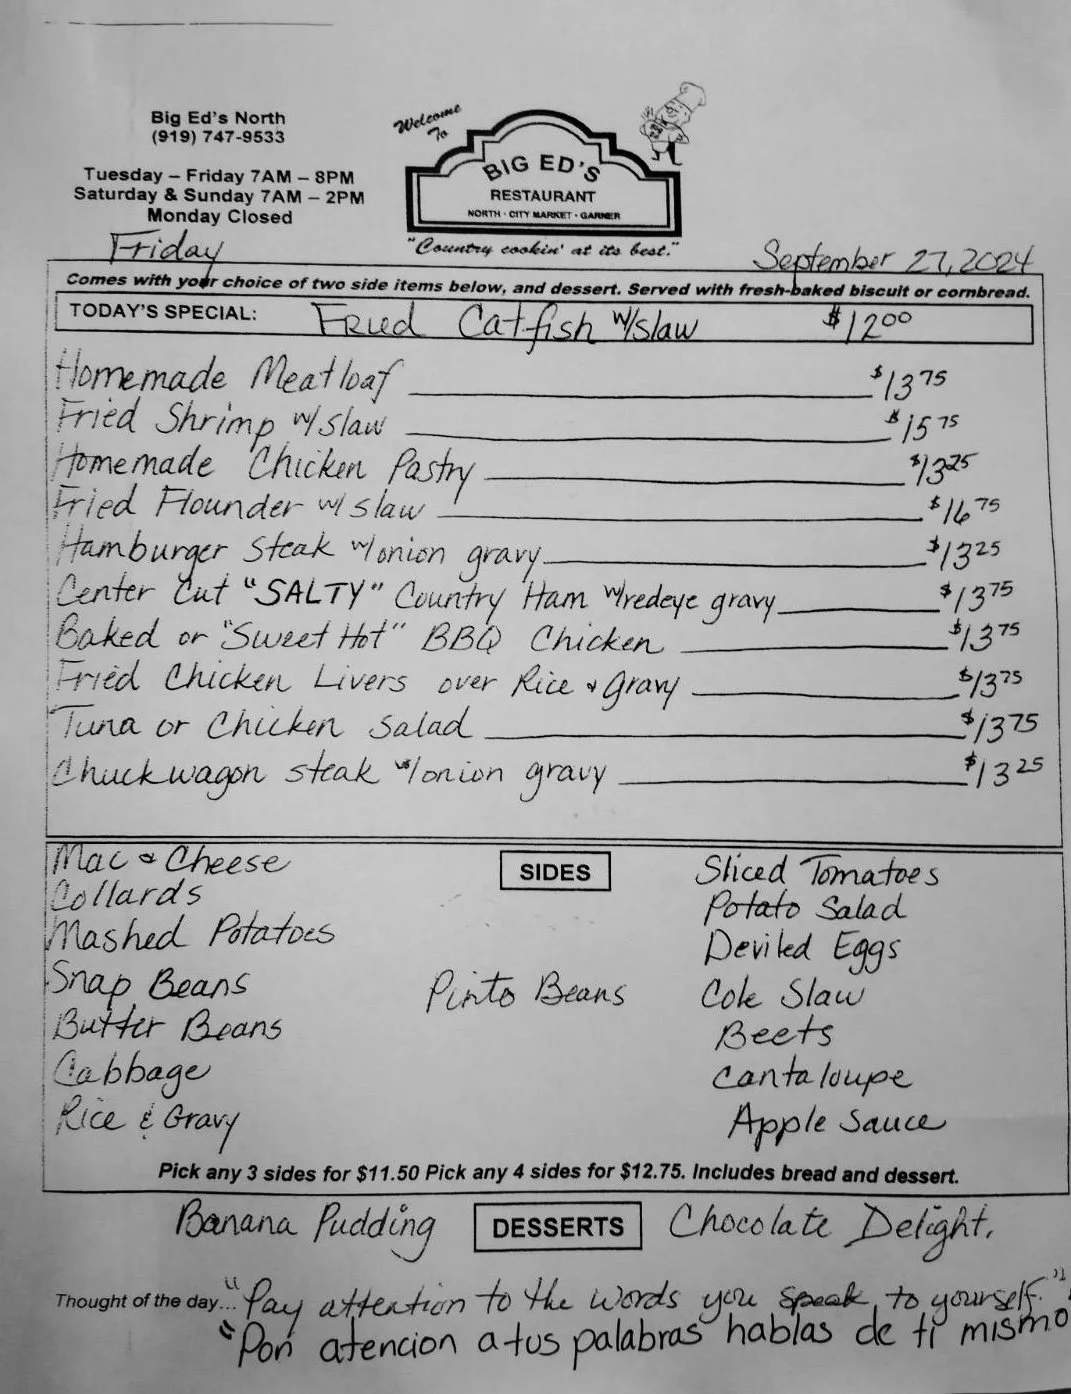 Big Ed's North
(919) 747-9533
Tuesday – Friday 7AM – 8PM
Saturday & Sunday 7AM – 2PM
Monday Closed
Welcome
To
BIG ED'S
RESTAURANT
NORTH · CITY MARKET · GARNER
"Country cookin' at its best."
Friday
September 27, 2024
Comes with your choice of two side items below, and dessert. Served with fresh-baked biscuit or cornbread.
TODAY'S SPECIAL: Fried Catfish w/slaw $12.00
Homemade Meatloaf $13.75
Fried Shrimp w/slaw $15.75
Homemade Chicken Pastry $13.25
Fried Flounder w/slaw $16.75
Hamburger Steak w/onion gravy $13.25
Center Cut "SALTY" Country Ham w/redeye gravy $13.75
Baked or "Sweet Hot" BBQ Chicken $13.75
Fried Chicken Livers over Rice & Gravy $13.75
Tuna or Chicken Salad $13.75
Chuckwagon steak w/onion gravy $13.25
SIDES
Mac & Cheese
Collards
Mashed Potatoes
Snap Beans
Butter Beans
Cabbage
Rice & Gravy
Pinto Beans
Sliced Tomatoes
Potato Salad
Deviled Eggs
Cole Slaw
Beets
Cantaloupe
Apple Sauce
Pick any 3 sides for $11.50 Pick any 4 sides for $12.75. Includes bread and dessert.
Banana Pudding DESSERTS Chocolate Delight.
Thought of the day... "Pay attention to the words you speak to yourself."
"Pon atencion a tus palabras hablas de ti mismo